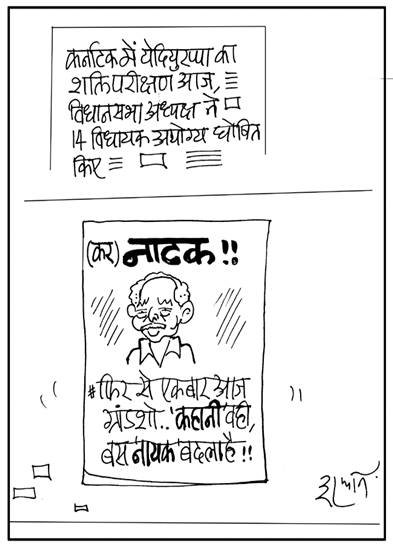 कर्नाटक में येदियुरप्पा का
शक्ति परीक्षण आज,
विधानसभा अध्यक्ष ने
14 विधायक अयोग्य घोषित
किए
(कर) नाटक!!
#फिर से एकबार आज
ग्रंडशो.. 'कहानी' वही,
बस 'नायक' बदला है!!